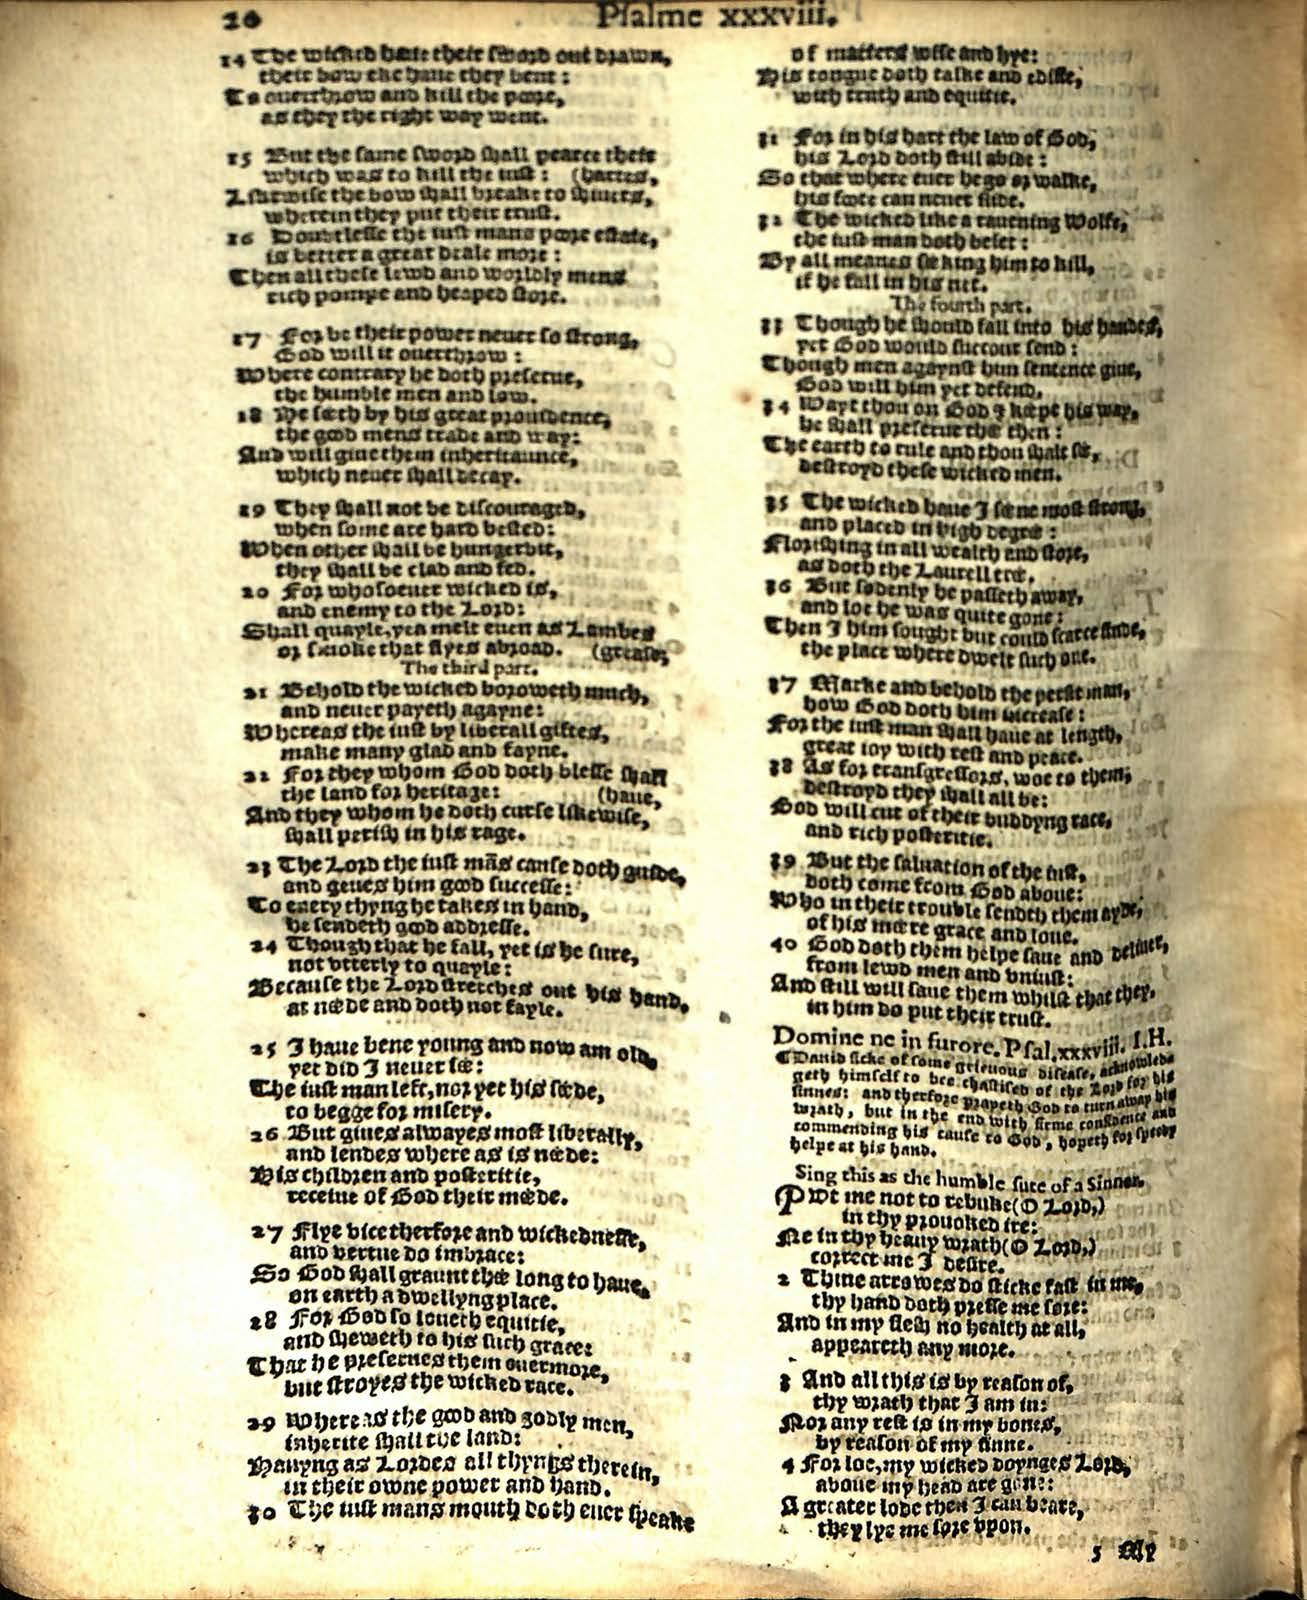 20
Psalme xxxviii.
14 The wicked haue their sword out drawn,
their bow eke haue they bent:
To ouerthrow and kill the poore,
as they the right way went.
15 But the same sword shall pearce their
which was to kill the iust: (hartes,
Likewise the bow shall breake to shiuers,
wherein they put their trust.
16 Doubtlesse the iust mans poore estate,
is better a great deale more:
Then all these lewd and worldly mens
rich pompe and heaped store.
17 For be their power neuer so strong,
God will it ouerthrow:
Where contrary he doth preserue,
the humble men and low.
18 He seeth by his great prouidence,
the good mens trade and way:
And will giue them inheritaunce,
which neuer shall decay.
19 They shall not be discouraged,
when some are hard bested:
When other shall be hungerbit,
they shall be clad and fed.
20 For whosoeuer wicked is,
and enemy to the Lord:
Shall quayle, yea melt euen as Lambes
or smoke that flyes abroad. (grease,
The third part.
21 Behold the wicked boroweth much,
and neuer payeth agayne:
Whereas the iust by liberall giftes,
make many glad and fayne.
22 For they whom God doth blesse shall
the land for heritage: (haue,
And they whom he doth curse likewise,
shall perish in his rage.
23 The Lord the iust mãs cause doth guide,
and geues him good successe:
To euery thyng he takes in hand,
he sendeth good addresse.
24 Though that he fall, yet is he sure,
not vtterly to quayle:
Because the Lord stretches out his hand,
at neede and doth not fayle.
25 I haue bene young and now am old,
yet did I neuer see:
The iust man left, nor yet his seede,
to begge for misery.
26 But giues alwayes most liberally,
and lendes where as is neede:
His children and posteritie,
receiue of God their meede.
27 Flye vice therfore and wickednesse,
and vertue do imbrace:
So God shall graunt thee long to haue,
on earth a dwellyng place.
28 For God so loueth equitie,
and sheweth to his such grace:
That he preserues them euermore,
but stroyes the wicked race.
29 Whereas the good and godly men,
inherite shall the land:
Hauyng as Lordes all thyngs therein,
in their owne power and hand.
30 The iust mans mouth doth euer speake
of matters wise and hye:
His tongue doth talke and edifie,
with truth and equitie.
31 For in his hart the law of God,
his Lord doth still abide:
So that where euer he go or walke,
his foote can neuer slide.
32 The wicked like a rauening Wolfe,
the iust man doth beset:
By all meanes seeking him to kill,
if he fall in his net.
The fourth part.
33 Though he should fall into his handes,
yet God would succour send:
Though men agaynst him sentence giue,
God will him yet defend.
34 Wayt thou on God & keepe his way,
he shall preserue thee then:
The earth to rule and thou shalt see,
destroyd these wicked men.
35 The wicked haue I seene most strong,
and placed in high degree:
Florishing in all wealth and store,
as doth the Laurell tree.
36 But sodenly he passeth away,
and loe he was quite gone:
Then I him sought but could scarce finde,
the place where dwelt such one.
37 Marke and behold the perfit man,
how God doth him increase:
For the iust man shall haue at length,
great ioy with rest and peace.
38 As for transgressors, woe to them,
destroyd they shall all be:
God will cut of their buddyng race,
and rich posteritie.
39 But the saluation of the iust,
doth come from God aboue:
Who in their trouble sendth them ayde,
of his meere grace and loue.
40 God doth them helpe saue and deliuer,
from lewd men and vniust:
And still will saue them whilst that they,
in him do put their trust.
Domine ne in furore. Psal. xxxviii. I.H.
¶Dauid sicke of some grieuous disease, acknowled-
geth himself to bee chastised of the Lord for his
sinnes: and therfore prayeth God to turn away his
wrath, but in the end with firme confidence and
commending his cause to God, hopeth for speedy
helpe at his hand.
Sing this as the humble sute of a Sinner.
PVt me not to rebuke (O Lord,)
in thy prouoked ire:
Ne in thy heauy wrath (O Lord,)
correct me I desire.
2 Thine arrowes do sticke fast in me,
thy hand doth presse me sore:
And in my flesh no health at all,
appeareth any more.
3 And all this is by reason of,
thy wrath that I am in:
Nor any rest is in my bones,
by reason of my sinne.
4 For loe, my wicked doynges Lord,
aboue my head are gone:
A greater lode then I can beare,
they lye me sore vpon.
5 My